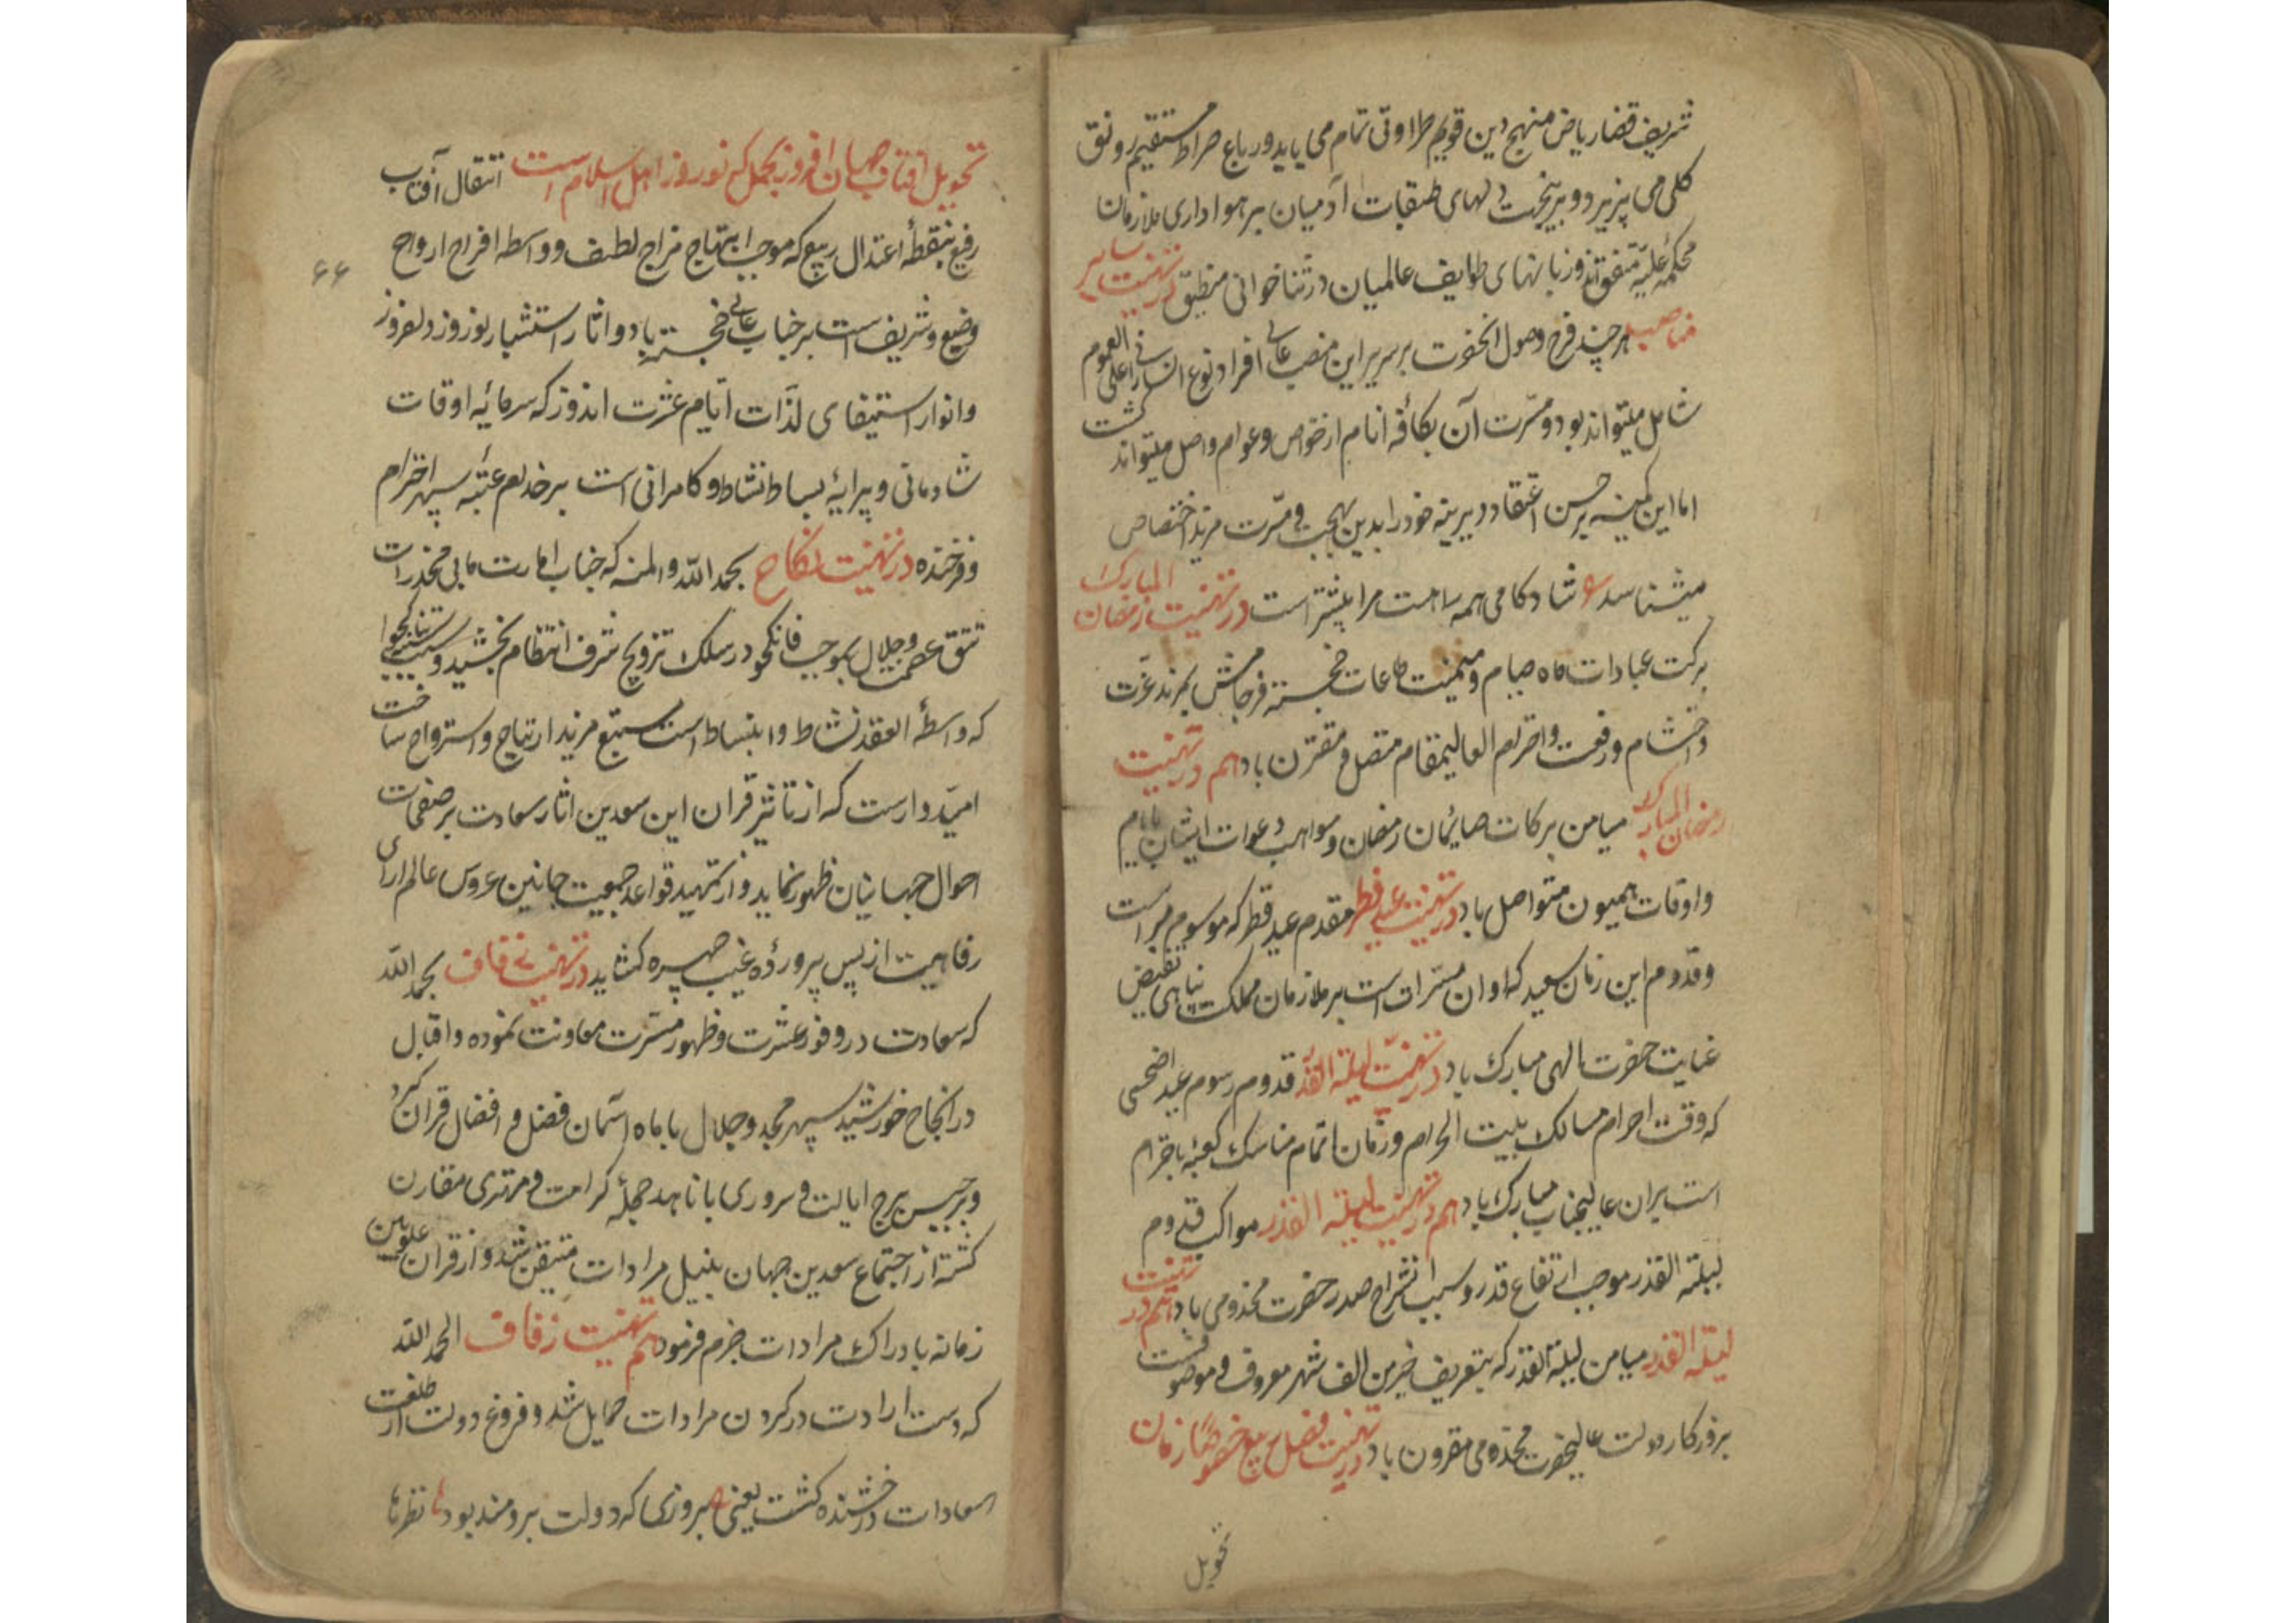 شریف قضا ریاض منهج دین قویم طراوتی تمام می یابد و رباع صراط مستقیم رونق
کلی می پذیرد و بر نیخت دلهای طبقات آدمیان بر هواداری ملازمان
محکمهٔ علیّه متفق اند و زبانهای طوایف عالمیان در ثناخوانی منطبق در تهنیت سایر
مناصب هر چند فرح وصول آنحضرت بر سریر این منصب عالی افراد نوع انسانی را علی العموم
شامل میتواند بود و مسّرت آن بکافهٔ انام از خواص و عوام واصل میتواند گشت
اما این کمینه بر حسن اعتقاد دیرینه خود را بدین بهجت و مسّرت مزید اختصاص
میشناسد ع شادکامی همه راهست مرا بیشتر است در تهنیت رمضان المبارک
برکت عبادات ماه صیام و میمنت طاعات خجسته فرجامش بمزید عزّت
و احتشام و رفعت و احترام العالیمقام متصل و مقترن باد هم در تهنیت
رمضان المبارک میامن برکات صایمان رمضان و مواهب دعوات ایشان بایام
و اوقات همیون متواصل باد در تهنیت عید فطر مقدم عید فطر که موسوم مبرات است
و قدوم این زمان سعید که اوان مسّرات است بر ملازمان مملکت پناهی بفیض
عنایت حضرت الهی مبارک باد در تهنیت لیلة القدر قدوم رسوم عید اضحی
که وقت احرام مسالک بیت الحرام و زمان اتمام مناسک کعبهٔ با احترام
است بر ان عالیجناب مبارک باد هم در تهنیت لیلة القدر مواکب قدوم
لیلة القدر موجب ارتفاع قدر و سبب انشراح صدر حضرت مخدومی باد هم در تهنیت
لیلة القدر میامن لیلة القدر که بتعریف خیر من الف شهر معروف و موصوفست
بروزکار دولت عالیحضرت مخدومی مقرون باد در تهنیت فصل ربیع خصوصًا زمان
تحویل
تحویل آفتاب جهان افروز بحمل که نوروز اهل اسلام است انتقال آفتاب
رفیع بنقطهٔ اعتدال ربیع که موجب ابتهاج مزاج لطیف و واسطه افراح ارواح
۶۶
وضیع و شریف است بر جناب عالی خجسته باد و اثار استبشار نوروز دلفروز
و انوار استیفای لذّات ایّام عشرت اندوز که سرمایه اوقات
شادمانی و پیرایهٔ بساط نشاط و کامرانی است بر خدام عتبه سپهر احترام
فرخنده در تهنیت نکاح بحمد الله والمنه که جناب امارت مابی مخدرات
تتق عصمت و جلال بموجب فانکحوا در سلک تزویج شرف انتظام بخشید و سنت تناکحوا
که واسطهٔ العقد نشاط و انبساط است مستتبع مزید ارتیاح و استرواح ساخت
امیّدوارست که از تاثیر قران این سعدین اثار سعادت بر صفحات
احوال جهانیان ظهور نماید و از تمهید قواعد جمعیت جانبین عروس عالم ارای
رفاهیت از پس پروردهٔ غیب چهره کشاید در تهنیت زفاف بحمد الله
که سعادت در وفور عشرت و ظهور مسّرت معاونت نموده و اقبال
در انجاح خورشید سپهر مجد و جلال با ماه آسمان فضل و افضال قران کرد
و برجیس برج ایالت و سروری با ناهید حجلهٔ کرامت و مهتری مقارن
کشته از اجتماع سعدین جهان بنیل مرادات متیقن شد و از قران علویین
زمانه بادراک مرادات جزم فرمود هم تهنیت زفاف الحمد الله
که دست ارادت در کردن مرادات حمایل شد و فروغ دولت از طلعت
سعادات درخشنده کشت یعنی ع بروزی که دولت برومند بود نظرها